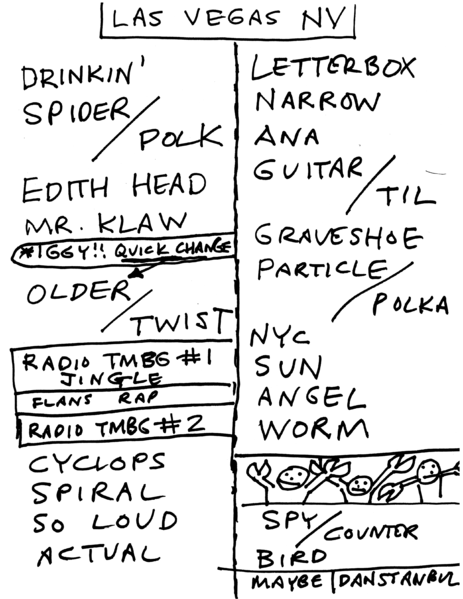 LAS VEGAS NV
DRINKIN'
SPIDER/
POLK
EDITH HEAD
MR. KLAW
*IGGY!! QUICK CHANGE
OLDER/
TWIST
RADIO TMBG #1
JINGLE
FLANS RAP
RADIO TMBG #2
CYCLOPS
SPIRAL
SO LOUD
ACTUAL
LETTERBOX
NARROW
ANA
GUITAR/
TIL
GRAVESHOE
PARTICLE/
POLKA
NYC
SUN
ANGEL
WORM
SPY/COUNTER
BIRD
MAYBE|DANSTANBUL